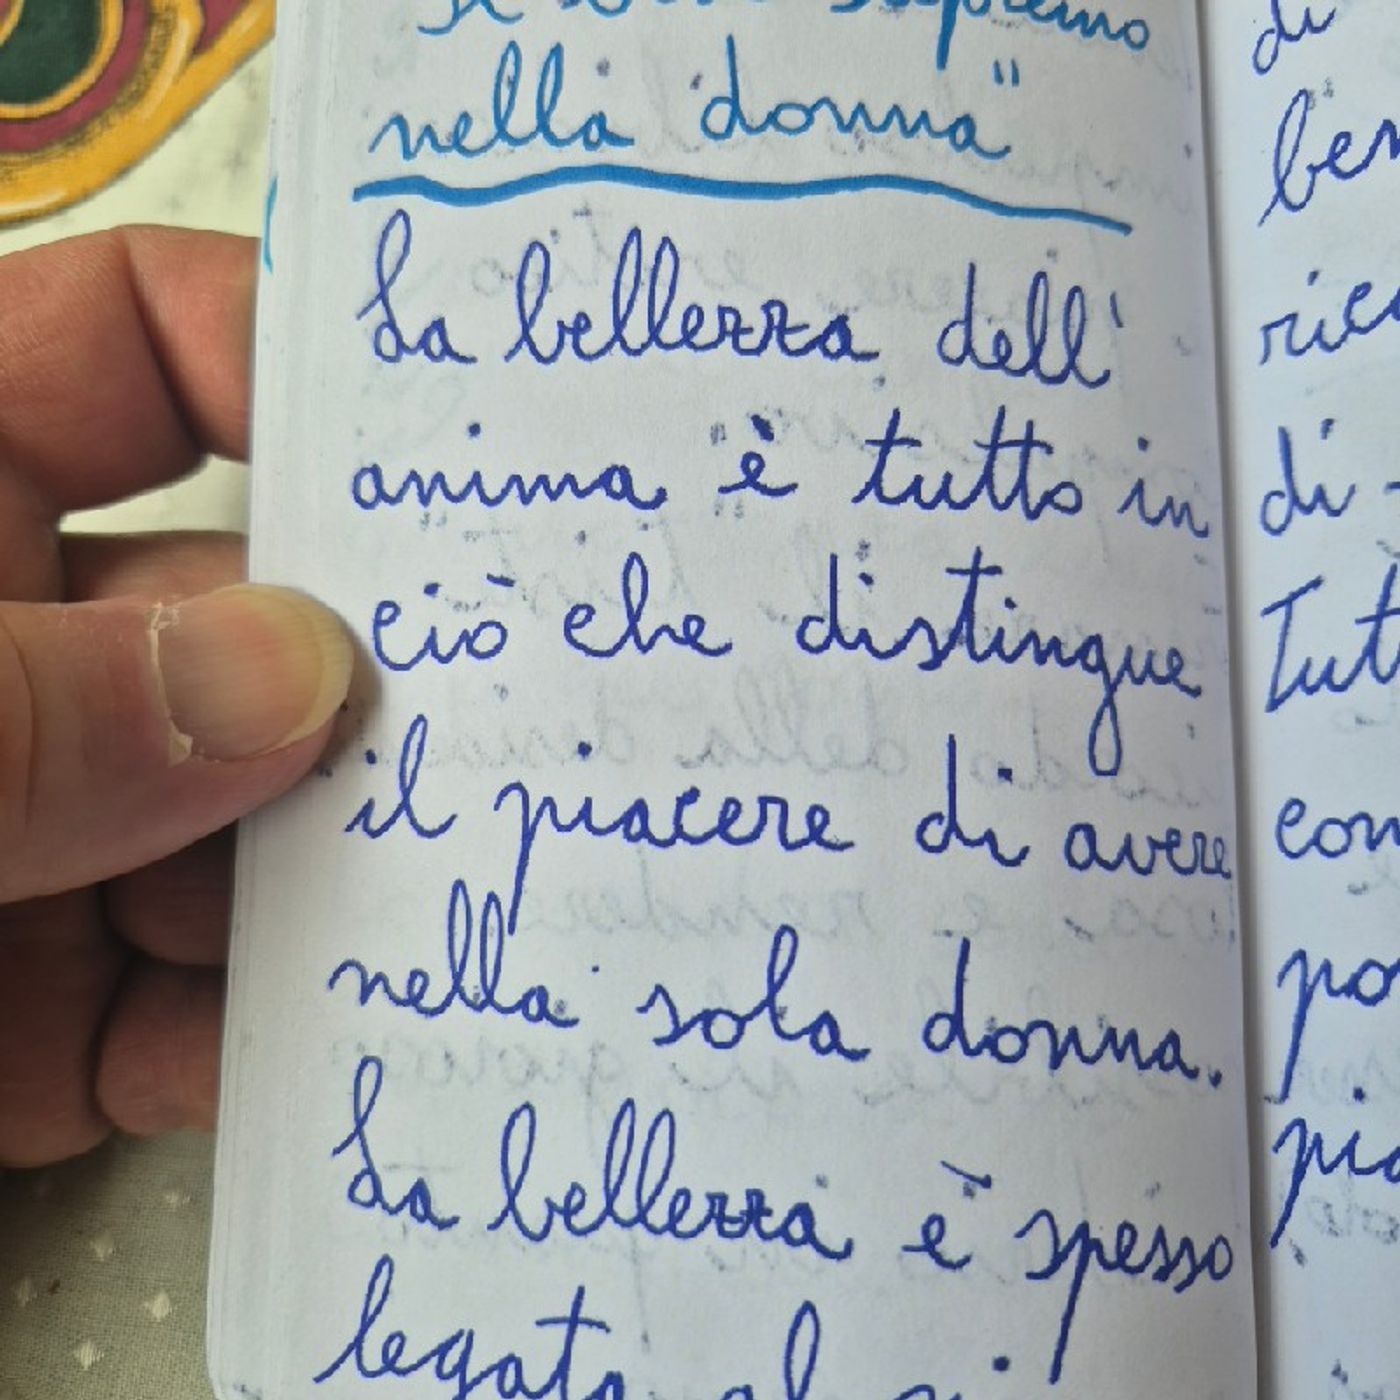 supremo
nella donna"
La bellezza dell'
anima è tutto in
ciò che distingue
il piacere di avere
nella sola donna.
La bellezza è spesso
legata al
di
di